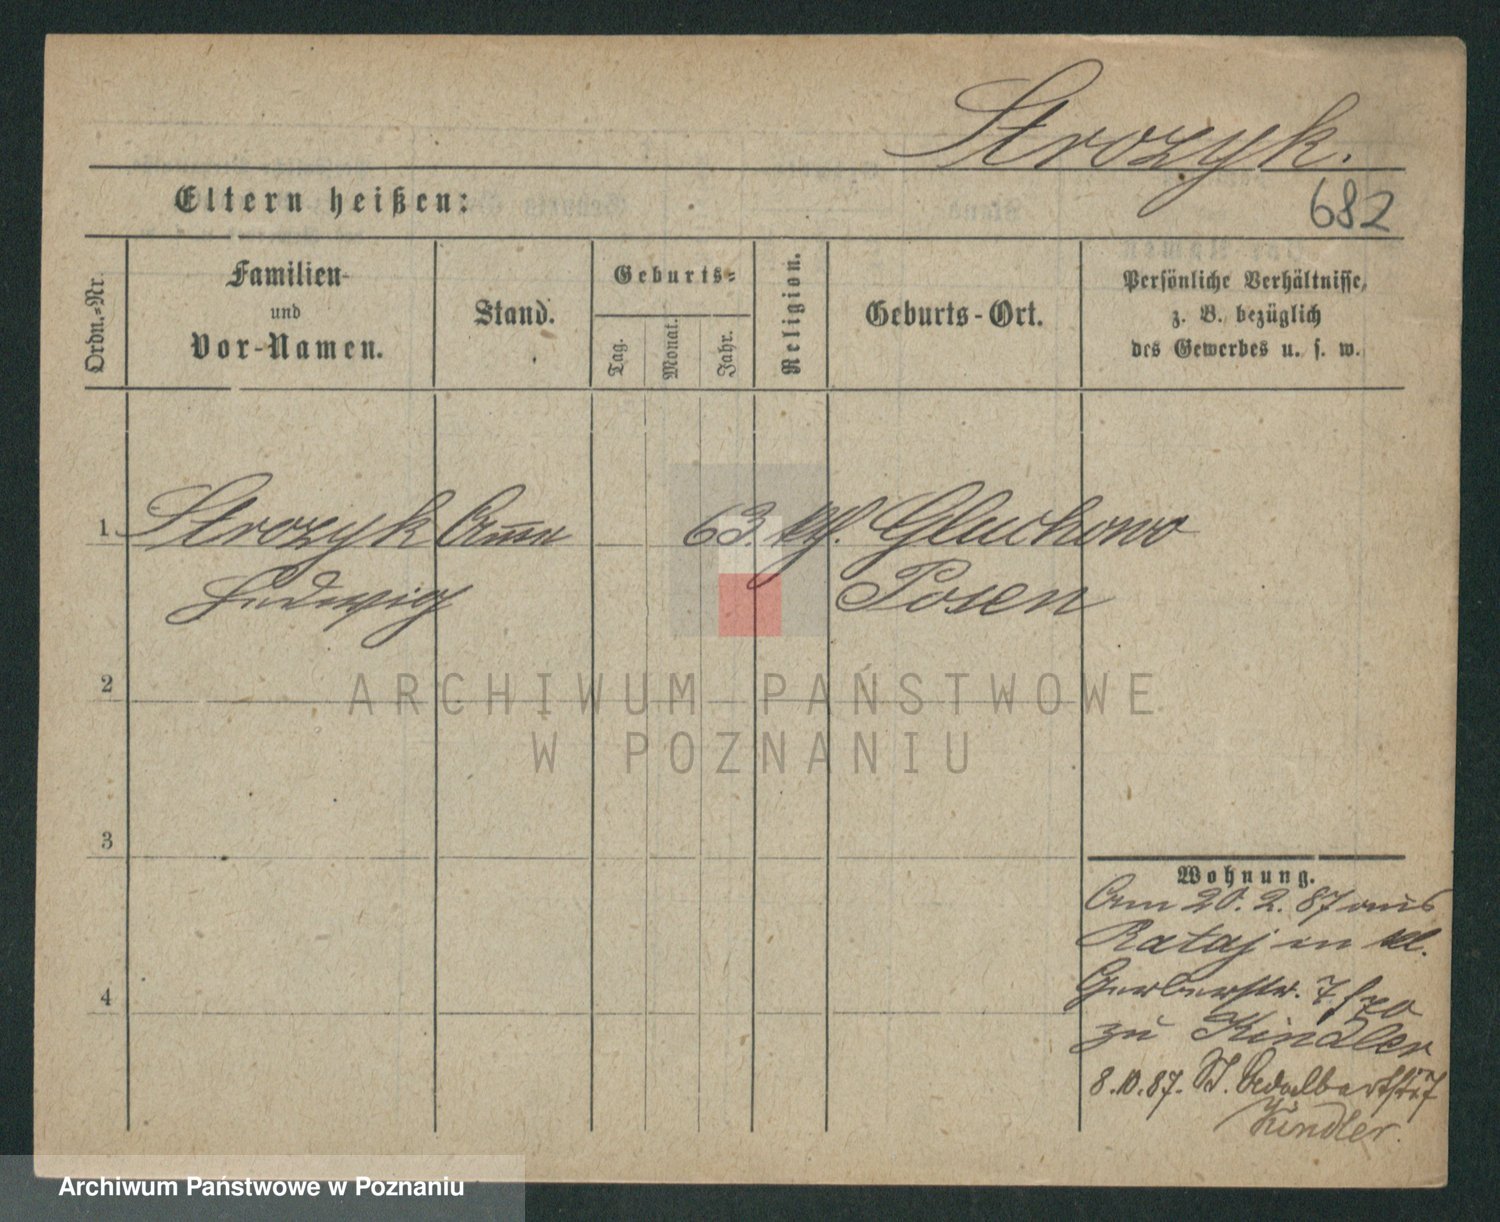 Strozyk.
682
Eltern heißen:
Ordn.-Nr.
Familien-
und
Vor-Namen.
Stand.
Geburts-
Tag.
Monat.
Jahr.
Religion.
Geburts-Ort.
Persönliche Verhältnisse,
z. B. bezüglich
des Gewerbes u. s. w.
1 Strozyk 63. kth. Gluchowo
Ludwig Posen
2
3
4
ARCHIWUM PAŃSTWOWE
W POZNANIU
Wohnung.
Am 20. 2. 87 aus
Rataj in kl.
Gerberstr. 7
zu Kindler
8.10.87. St. Adalbertstr 7
Kindler.
Archiwum Państwowe w Poznaniu